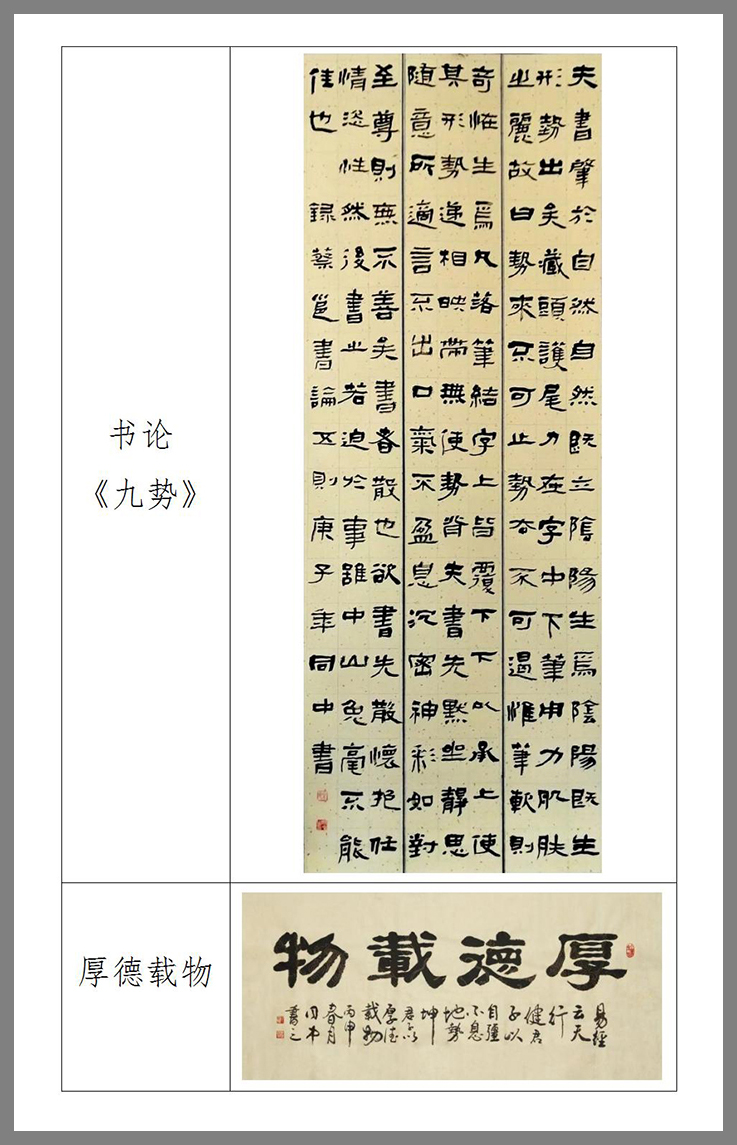 书论
《九势》
夫書肇於自然自然既立陰陽生焉陰陽既生
形勢出矣藏頭護尾力在字中下筆用力肌肤
之麗故曰勢來不可止勢去不可遏惟筆軟則
奇怪生焉凡落筆結字上皆覆下下以承上使
其形勢遞相映帶無使勢背夫書先黙坐靜思
隨意所適言不出口氣不盈息沉密神彩如對
至尊則無不善矣書者散也欲書先散懷抱任
情恣性然後書之若迫於事雖中山兔毫不能
佳也 録蔡邕書論五則庚子年同中書
厚德载物
厚德載物
易經
云天
行
健君
子以
自彊
不息
地勢
坤
君子以
厚德
載物
丙申
春月
同中
書之